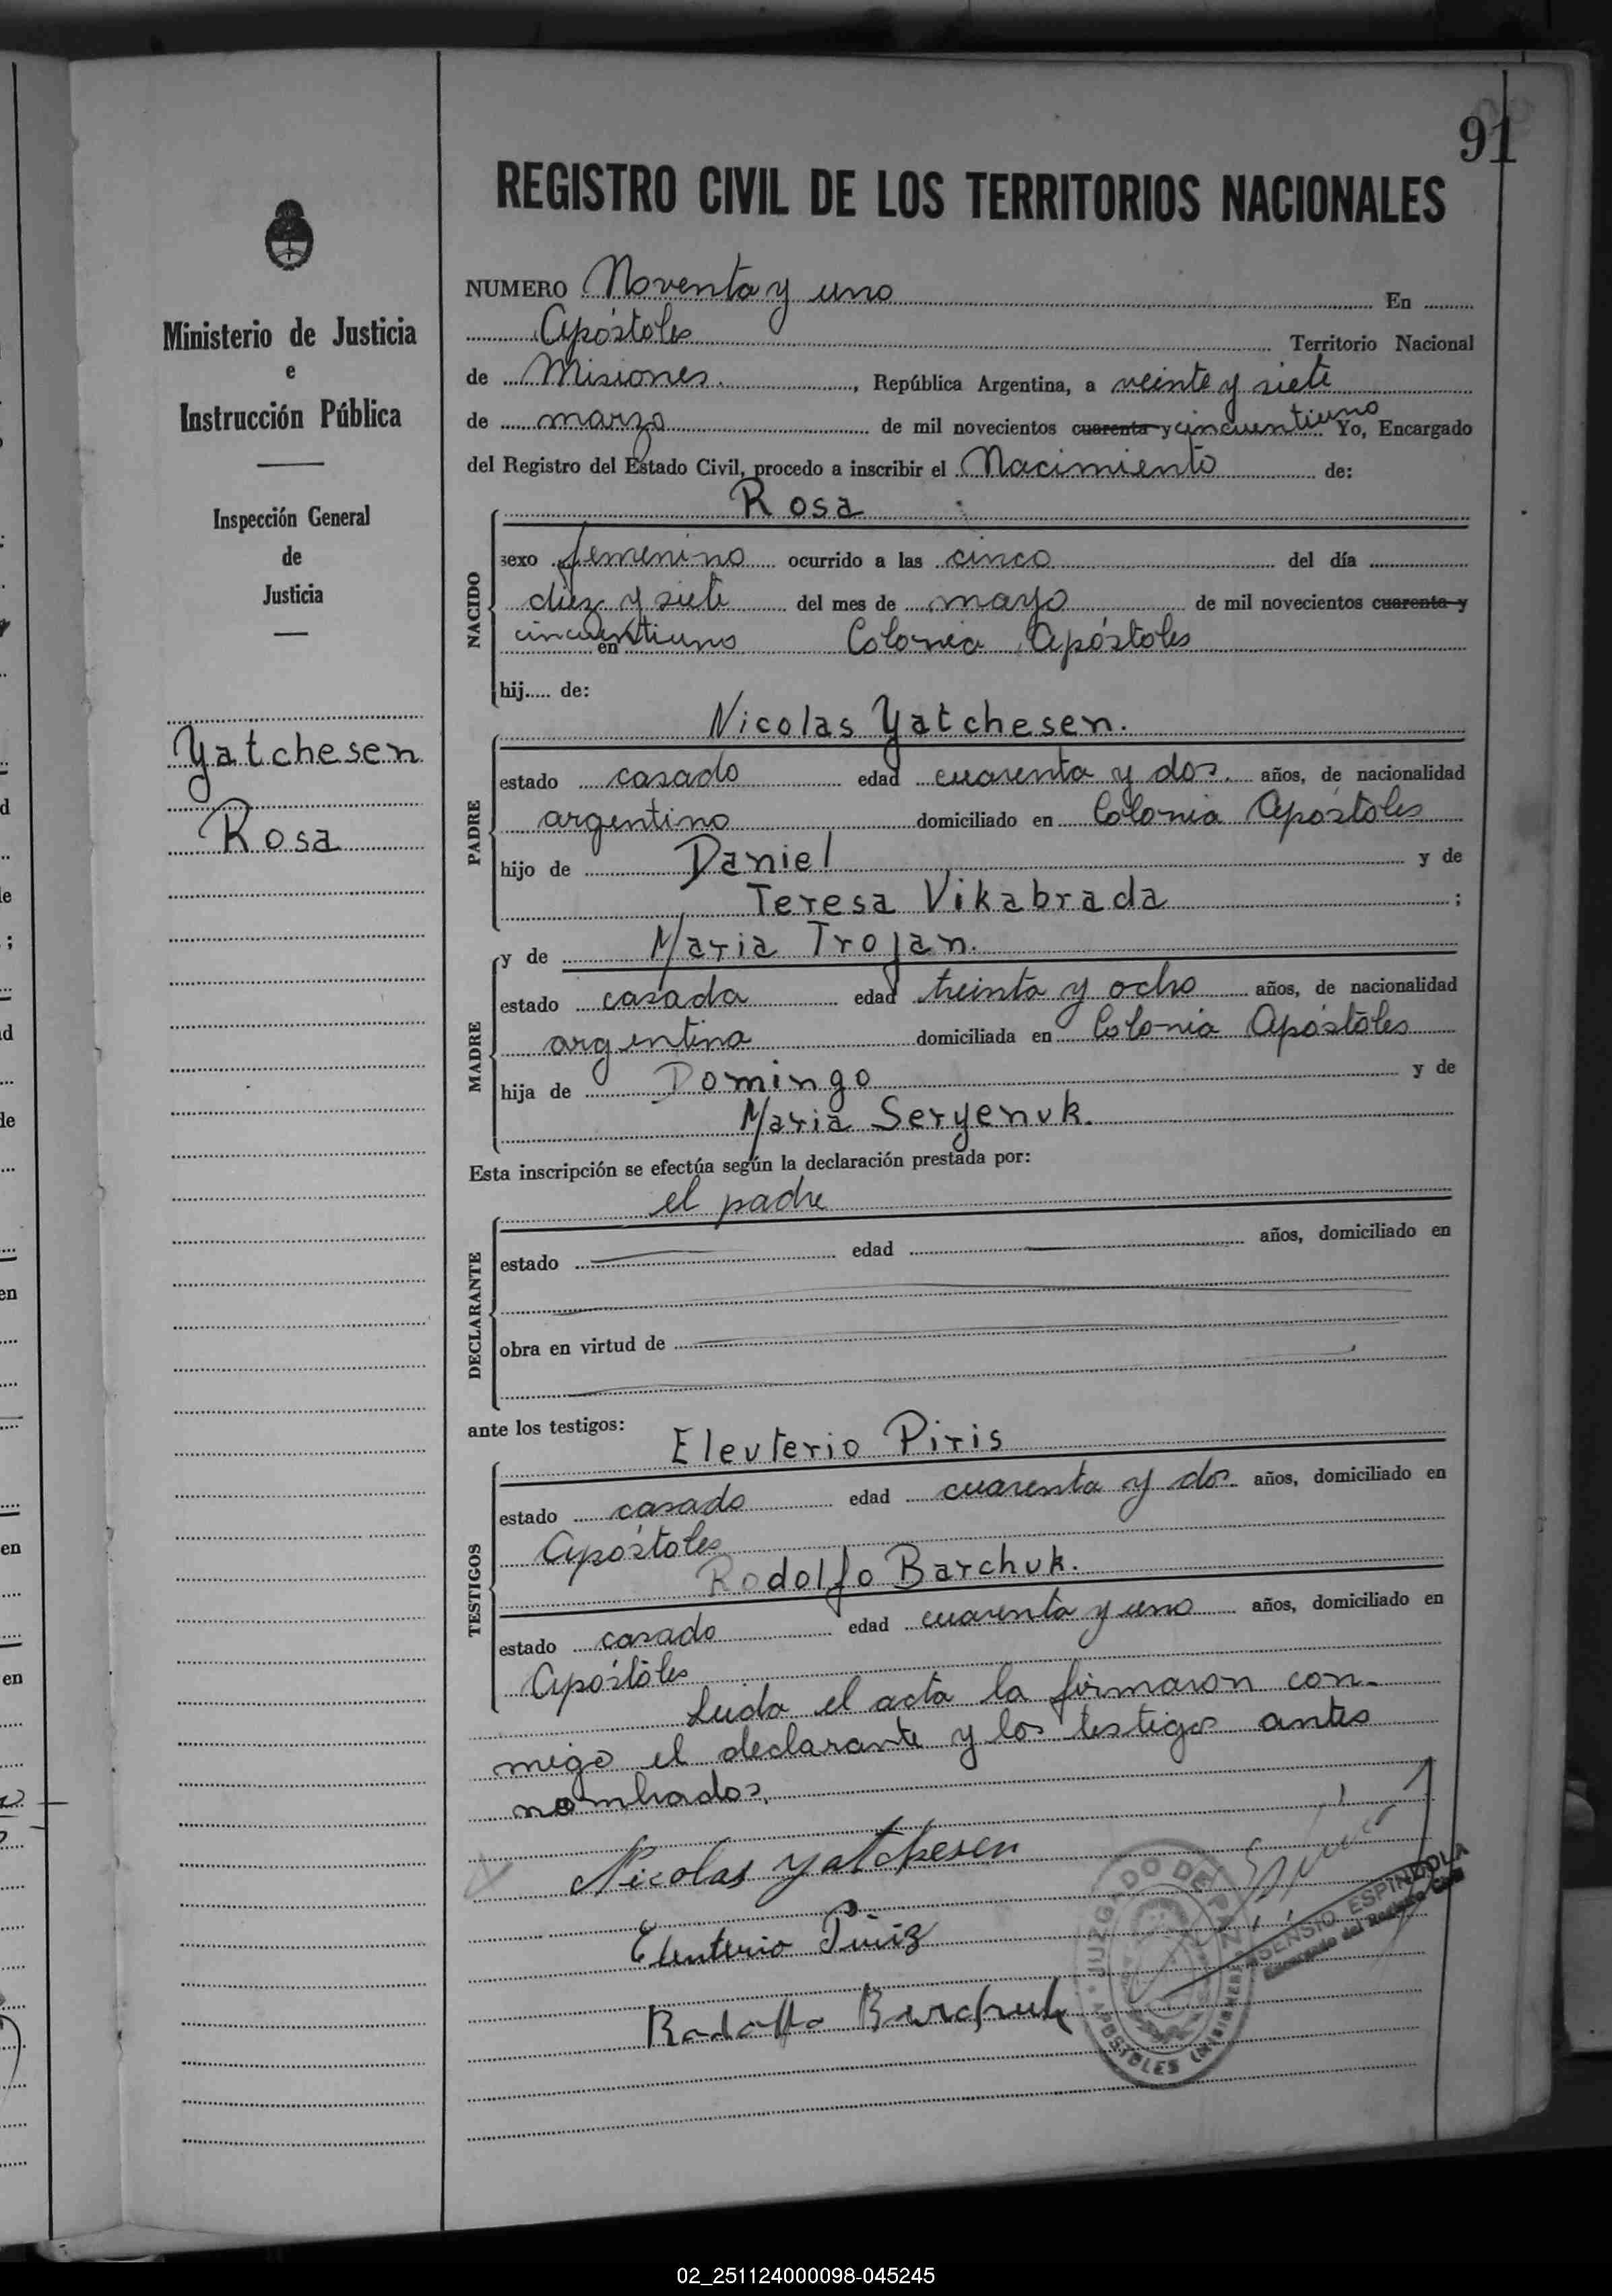 91
REGISTRO CIVIL DE LOS TERRITORIOS NACIONALES
Ministerio de Justicia
e
Instrucción Pública
Inspección General
de
Justicia
Yatchesen
Rosa
NUMERO Noventa y uno En
Apóstoles Territorio Nacional
de Misiones, República Argentina, a veinte y siete
de marzo de mil novecientos cuarenta y cincuentiuno Yo, Encargado
del Registro del Estado Civil, procedo a inscribir el Nacimiento de:
Rosa
NACIDO
sexo femenino ocurrido a las cinco del día
diez y siete del mes de mayo de mil novecientos cuarenta y
cincuentiuno en Colonia Apóstoles
hij..... de:
Nicolas Yatchesen.
PADRE
estado casado edad cuarenta y dos. años, de nacionalidad
argentino domiciliado en Colonia Apóstoles
hijo de Daniel y de
Teresa Vikabrada ;
y de Maria Trojan.
MADRE
estado casada edad treinta y ocho años, de nacionalidad
argentina domiciliada en Colonia Apóstoles
hija de Domingo y de
Maria Seryenuk.
Esta inscripción se efectúa según la declaración prestada por:
el padre
DECLARANTE
estado edad años, domiciliado en
obra en virtud de
ante los testigos:
Eleuterio Piris
TESTIGOS
estado casado edad cuarenta y dos años, domiciliado en
Apóstoles
Rodolfo Barchuk.
estado casado edad cuarenta y uno años, domiciliado en
Apóstoles
Leida el acta la firmaron con-
migo el declarante y los testigos antes
nombrados.
Nicolas Yatchesen
Eleuterio Piriz
Rodolfo Barchuk
JUZGADO DE PAZ
APOSTOLES (MISIONES)
ASENSIO ESPINDOLA
Encargado del Registro Civil
02_251124000098-045245